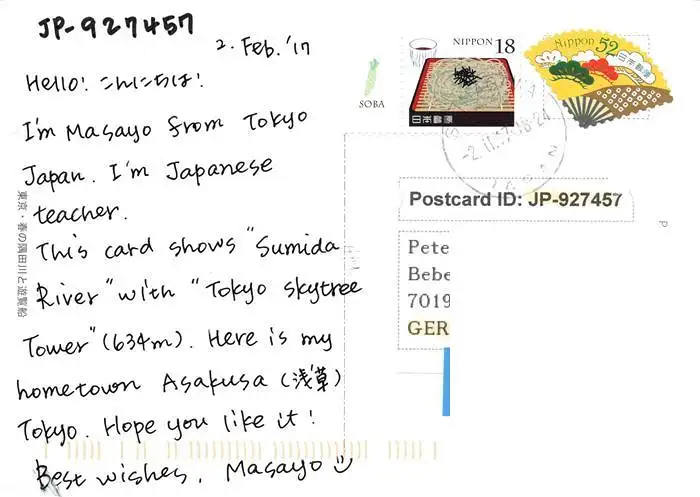 JP-927457
2. Feb. '17
Hello! こんにちは!
I'm Masayo from Tokyo
Japan. I'm Japanese
teacher.
This card shows "Sumida
River" with "Tokyo skytree
Tower" (634m). Here is my
hometown Asakusa (浅草)
Tokyo. Hope you like it!
Best wishes, Masayo
東京・春の隅田川と遊覧船
SOBA
NIPPON 18
日本郵便
NIPPON 52
日本郵便
JAPAN
Postcard ID: JP-927457
Pete
Bebe
7019
GER
P